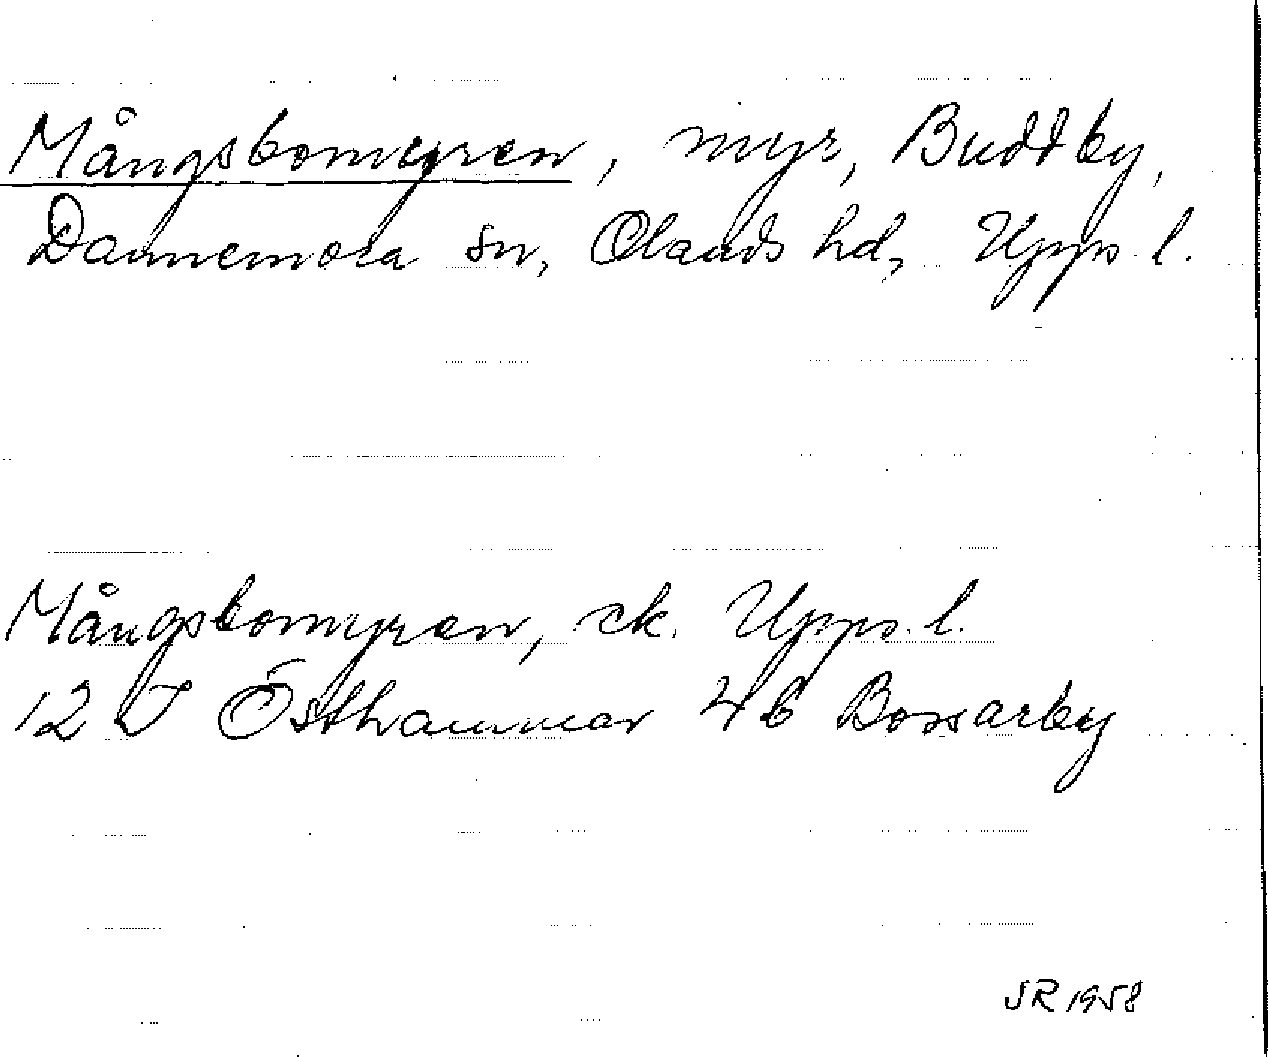 Mångsbomyren, myr, Buddby,
Dannemora sn, Olands hd, Upps. l.
Mångsbomyren, ek. Upps. l.
12 I Östhammar 4b Bossarby
SR 1958